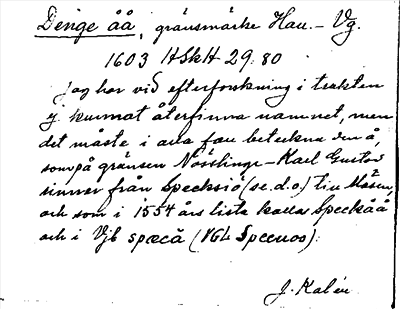 Denge åå, gränsmärke Hall.- Vg.
1603 HSkH 29. 80
Jag har vid efterforskning i trakten
ej kunnat återfinna namnet, men
det måste i alla fall beteckna den å,
som på gränsen Nösslinge-Karl Gustav
rinner från Specksjö (se.d.o.) till
och som i 1554 års lista kallas Speckåå
och i Vjb spæcå (VGL Specnos).
J. Kalén